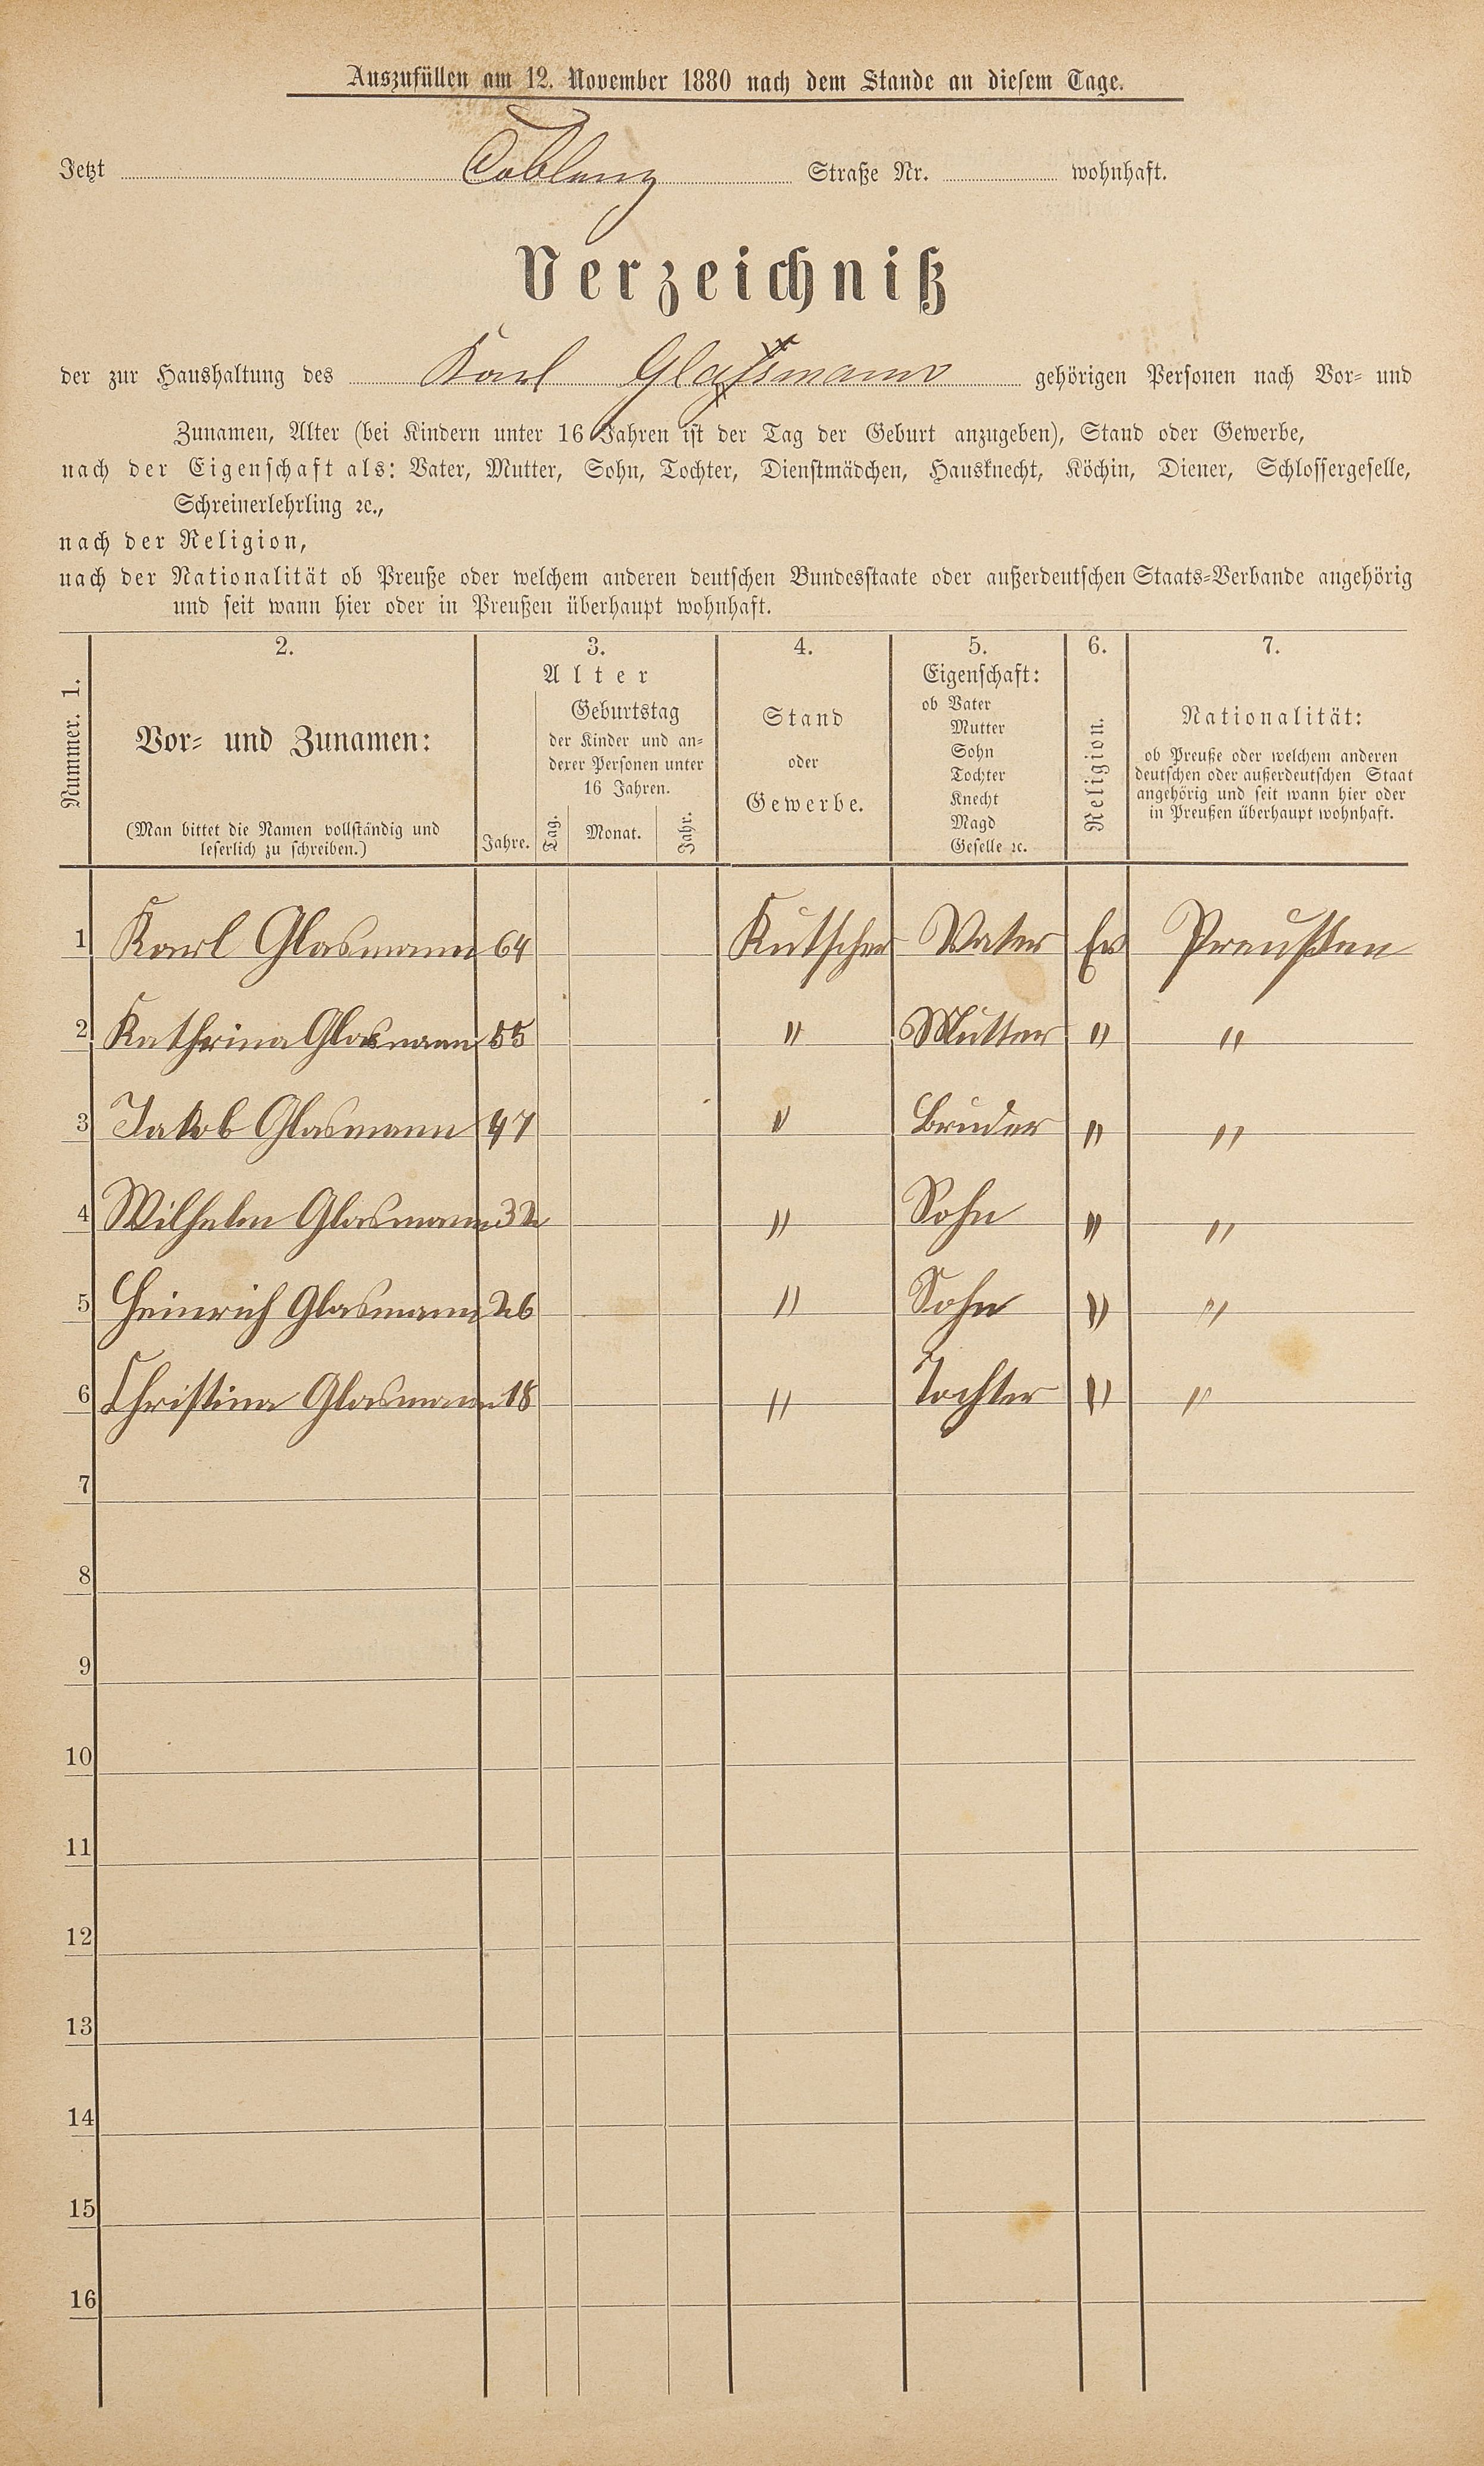 Auszufüllen am 12. November 1880 nach dem Stande an diesem Tage.
Jetzt Coblenz Straße Nr. wohnhaft.
Verzeichniß
der zur Haushaltung des Karl Glasmann gehörigen Personen nach Vor- und
Zunamen, Alter (bei Kindern unter 16 Jahren ist der Tag der Geburt anzugeben), Stand oder Gewerbe,
nach der Eigenschaft als: Vater, Mutter, Sohn, Tochter, Dienstmädchen, Hausknecht, Köchin, Diener, Schlossergeselle,
Schreinerlehrling ꝛc.,
nach der Religion,
nach der Nationalität ob Preuße oder welchem anderen deutschen Bundesstaate oder außerdeutschen Staats-Verbande angehörig
und seit wann hier oder in Preußen überhaupt wohnhaft.
Nummer. 1.
2.
Vor- und Zunamen:
(Man bittet die Namen vollständig und
leserlich zu schreiben.)
3.
Alter
Jahre.
Geburtstag
der Kinder und an-
derer Personen unter
16 Jahren.
Tag. Monat. Jahr.
4.
Stand
oder
Gewerbe.
5.
Eigenschaft:
ob Vater
Mutter
Sohn
Tochter
Knecht
Magd
Geselle ꝛc.
6.
Religion.
7.
Nationalität:
ob Preuße oder welchem anderen
deutschen oder außerdeutschen Staat
angehörig und seit wann hier oder
in Preußen überhaupt wohnhaft.
1 Karl Glasmann 64 Kutscher Vater Ev Preußen
2 Kathrina Glasmann 55 " Mutter " "
3 Jakob Glasmann 47 " Bruder " "
4 Wilhelm Glasmann 32 " Sohn " "
5 Heinrich Glasmann 26 " Sohn " "
6 Christina Glasmann 18 " Tochter " "
7
8
9
10
11
12
13
14
15
16